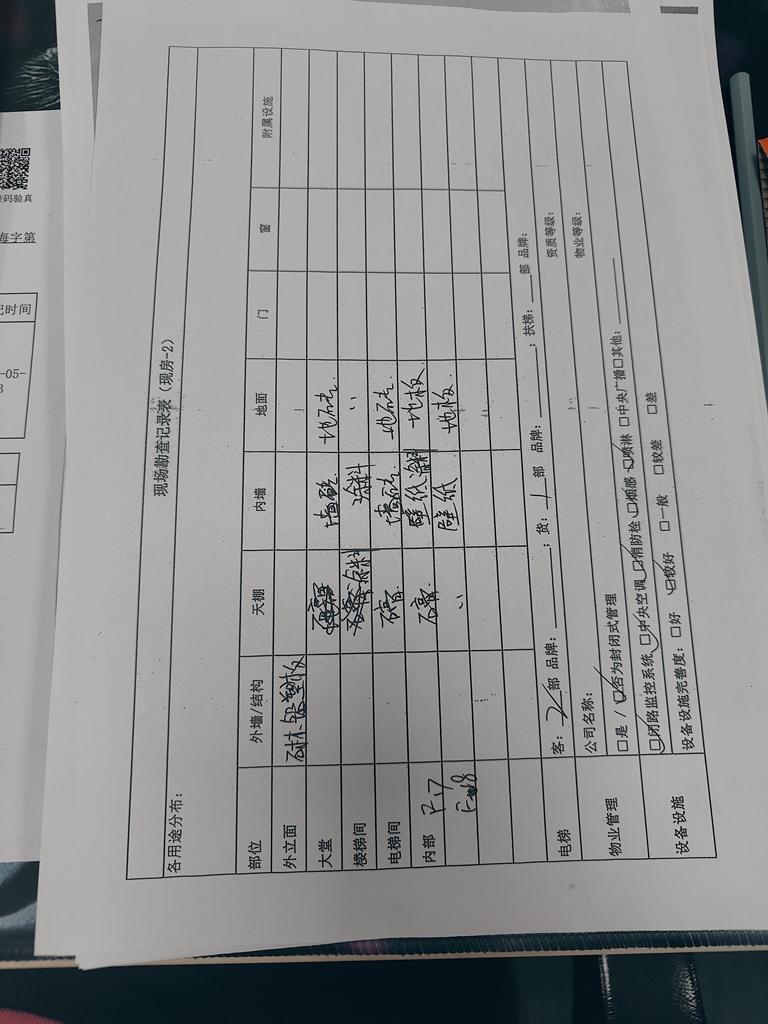 现场勘查记录表（现房-2）
各用途分布：
部位 外墙/结构 天棚 内墙 地面 门 窗 附属设施
外立面 石材.铝塑板
大堂 石膏 墙砖 地砖.
楼梯间 涂料 涂料 〃
电梯间 石膏. 墙砖. 地砖.
内部 F17 石膏. 壁纸 涂料 地板
F18 〃 壁纸 地板.
电梯 客：2 部 品牌： ；货：1 部 品牌： ；扶梯： 部 品牌：
物业管理 公司名称： 资质等级：
□是 / ☑否为封闭式管理 物业等级：
设备设施 ☑闭路监控系统 ☑中央空调 ☑消防栓 ☑烟感 ☑喷淋 □中央广播 □其他：
设备设施完善度：□好 ☑较好 □一般 □较差 □差
码验真
海字第
记时间
-05-
3